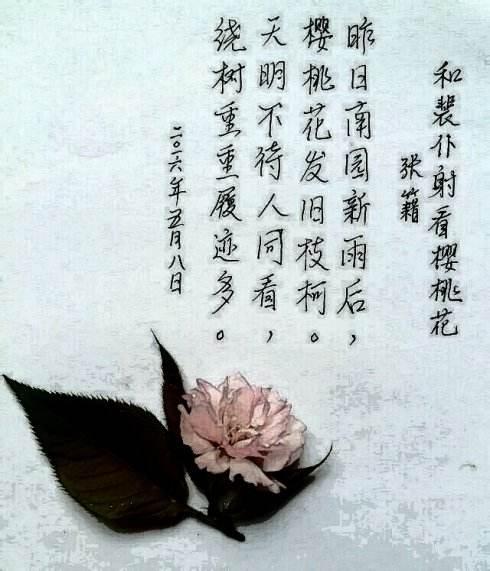 和裴仆射看樱桃花
张籍
昨日南园新雨后，
樱桃花发旧枝柯。
天明不待人同看，
绕树重重履迹多。
二〇一六年五月八日